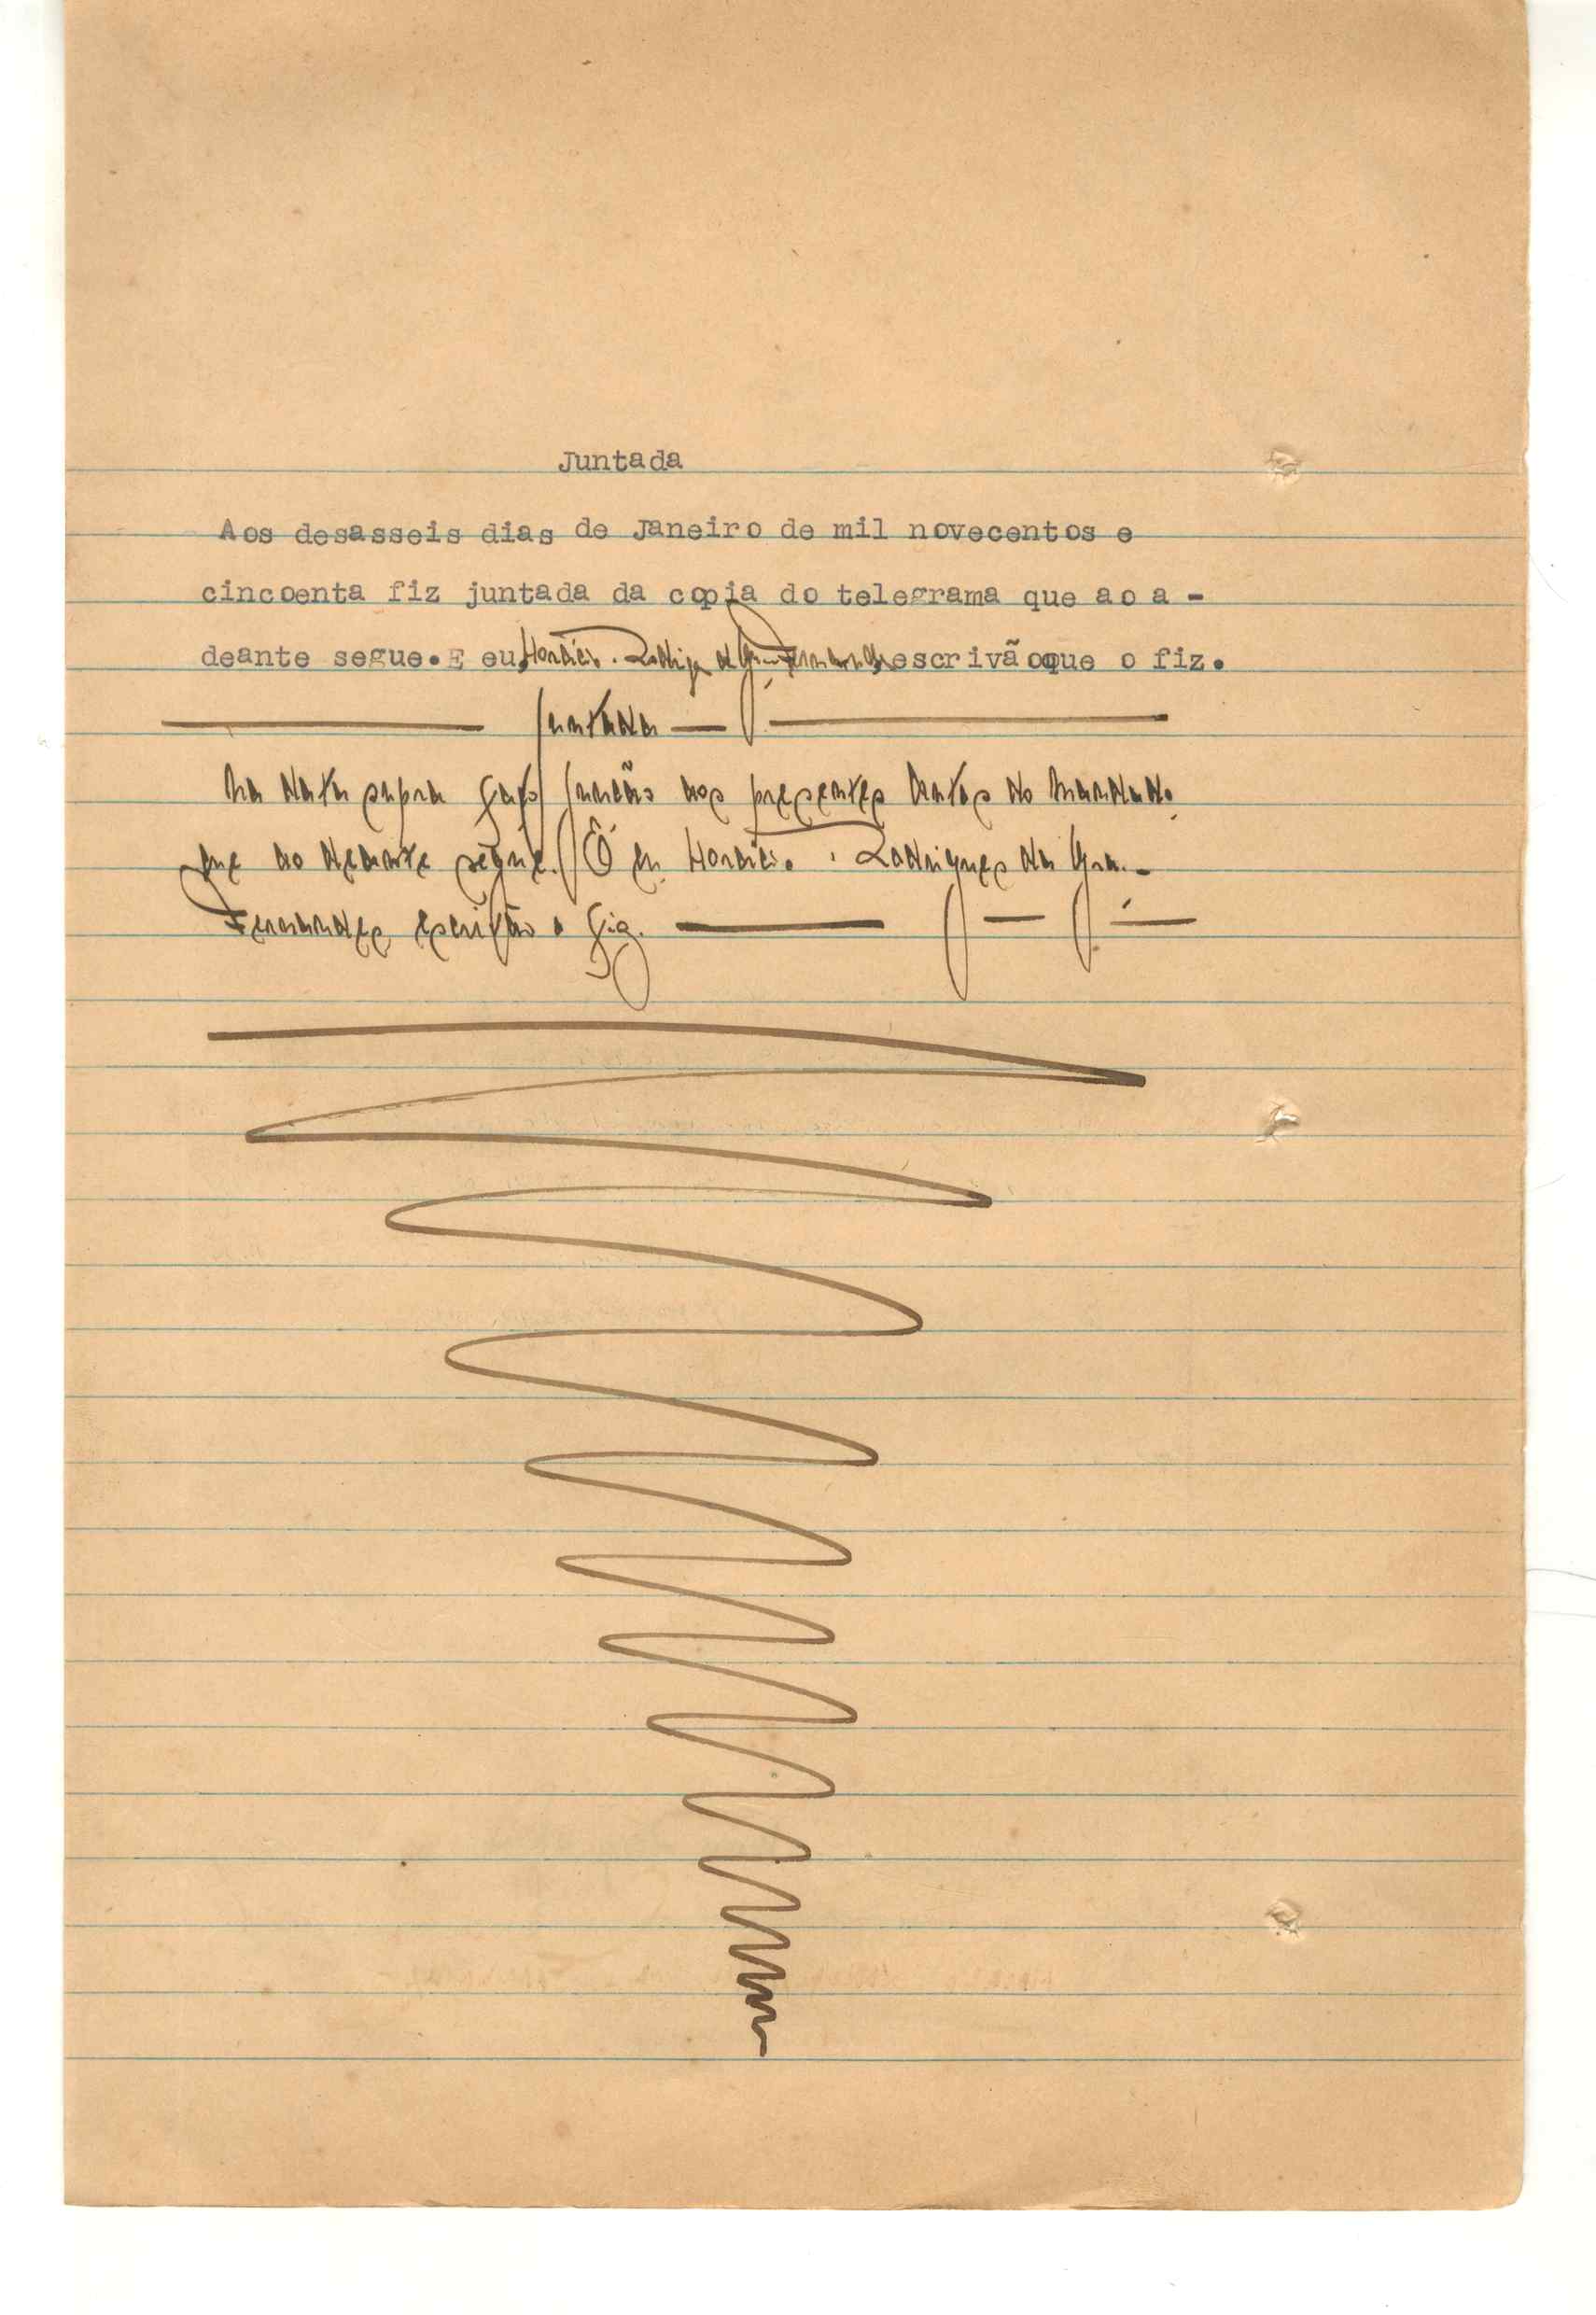 Juntada
Aos desasseis dias de Janeiro de mil novecentos e
cincoenta fiz juntada da copia do telegrama que ao a -
deante segue. E eu, Horacio Rodrigues da Fernandes escrivão que o fiz.
Juntada
Na data supra faço junção aos presentes Autos do Mandado
que ao deante segue. E eu Horacio Rodrigues da
Fernandes escrivão o fiz.